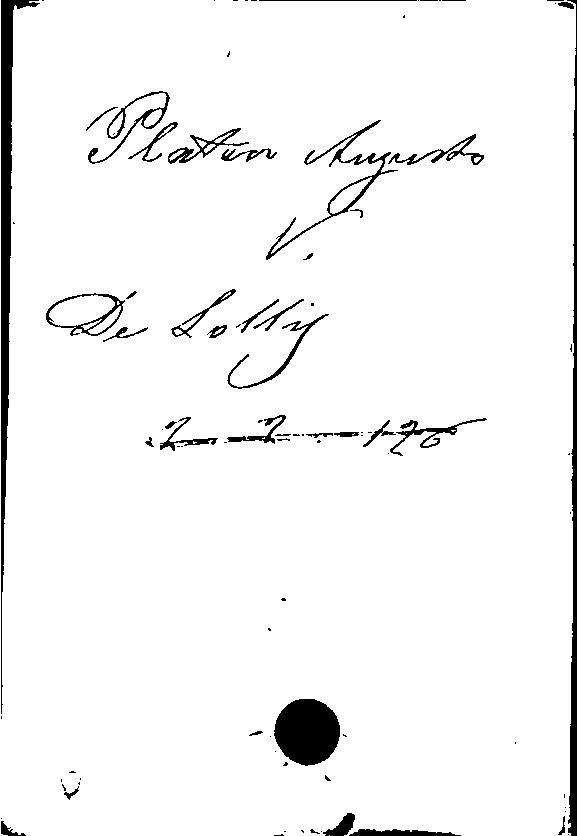 Platon Augusto
V.
De Lollis
2 2 126